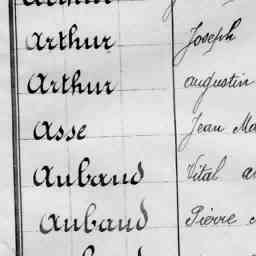 Arthur Joseph
Arthur augustin
Asse Jean
Aubaud Vital
Aubaud Pierre